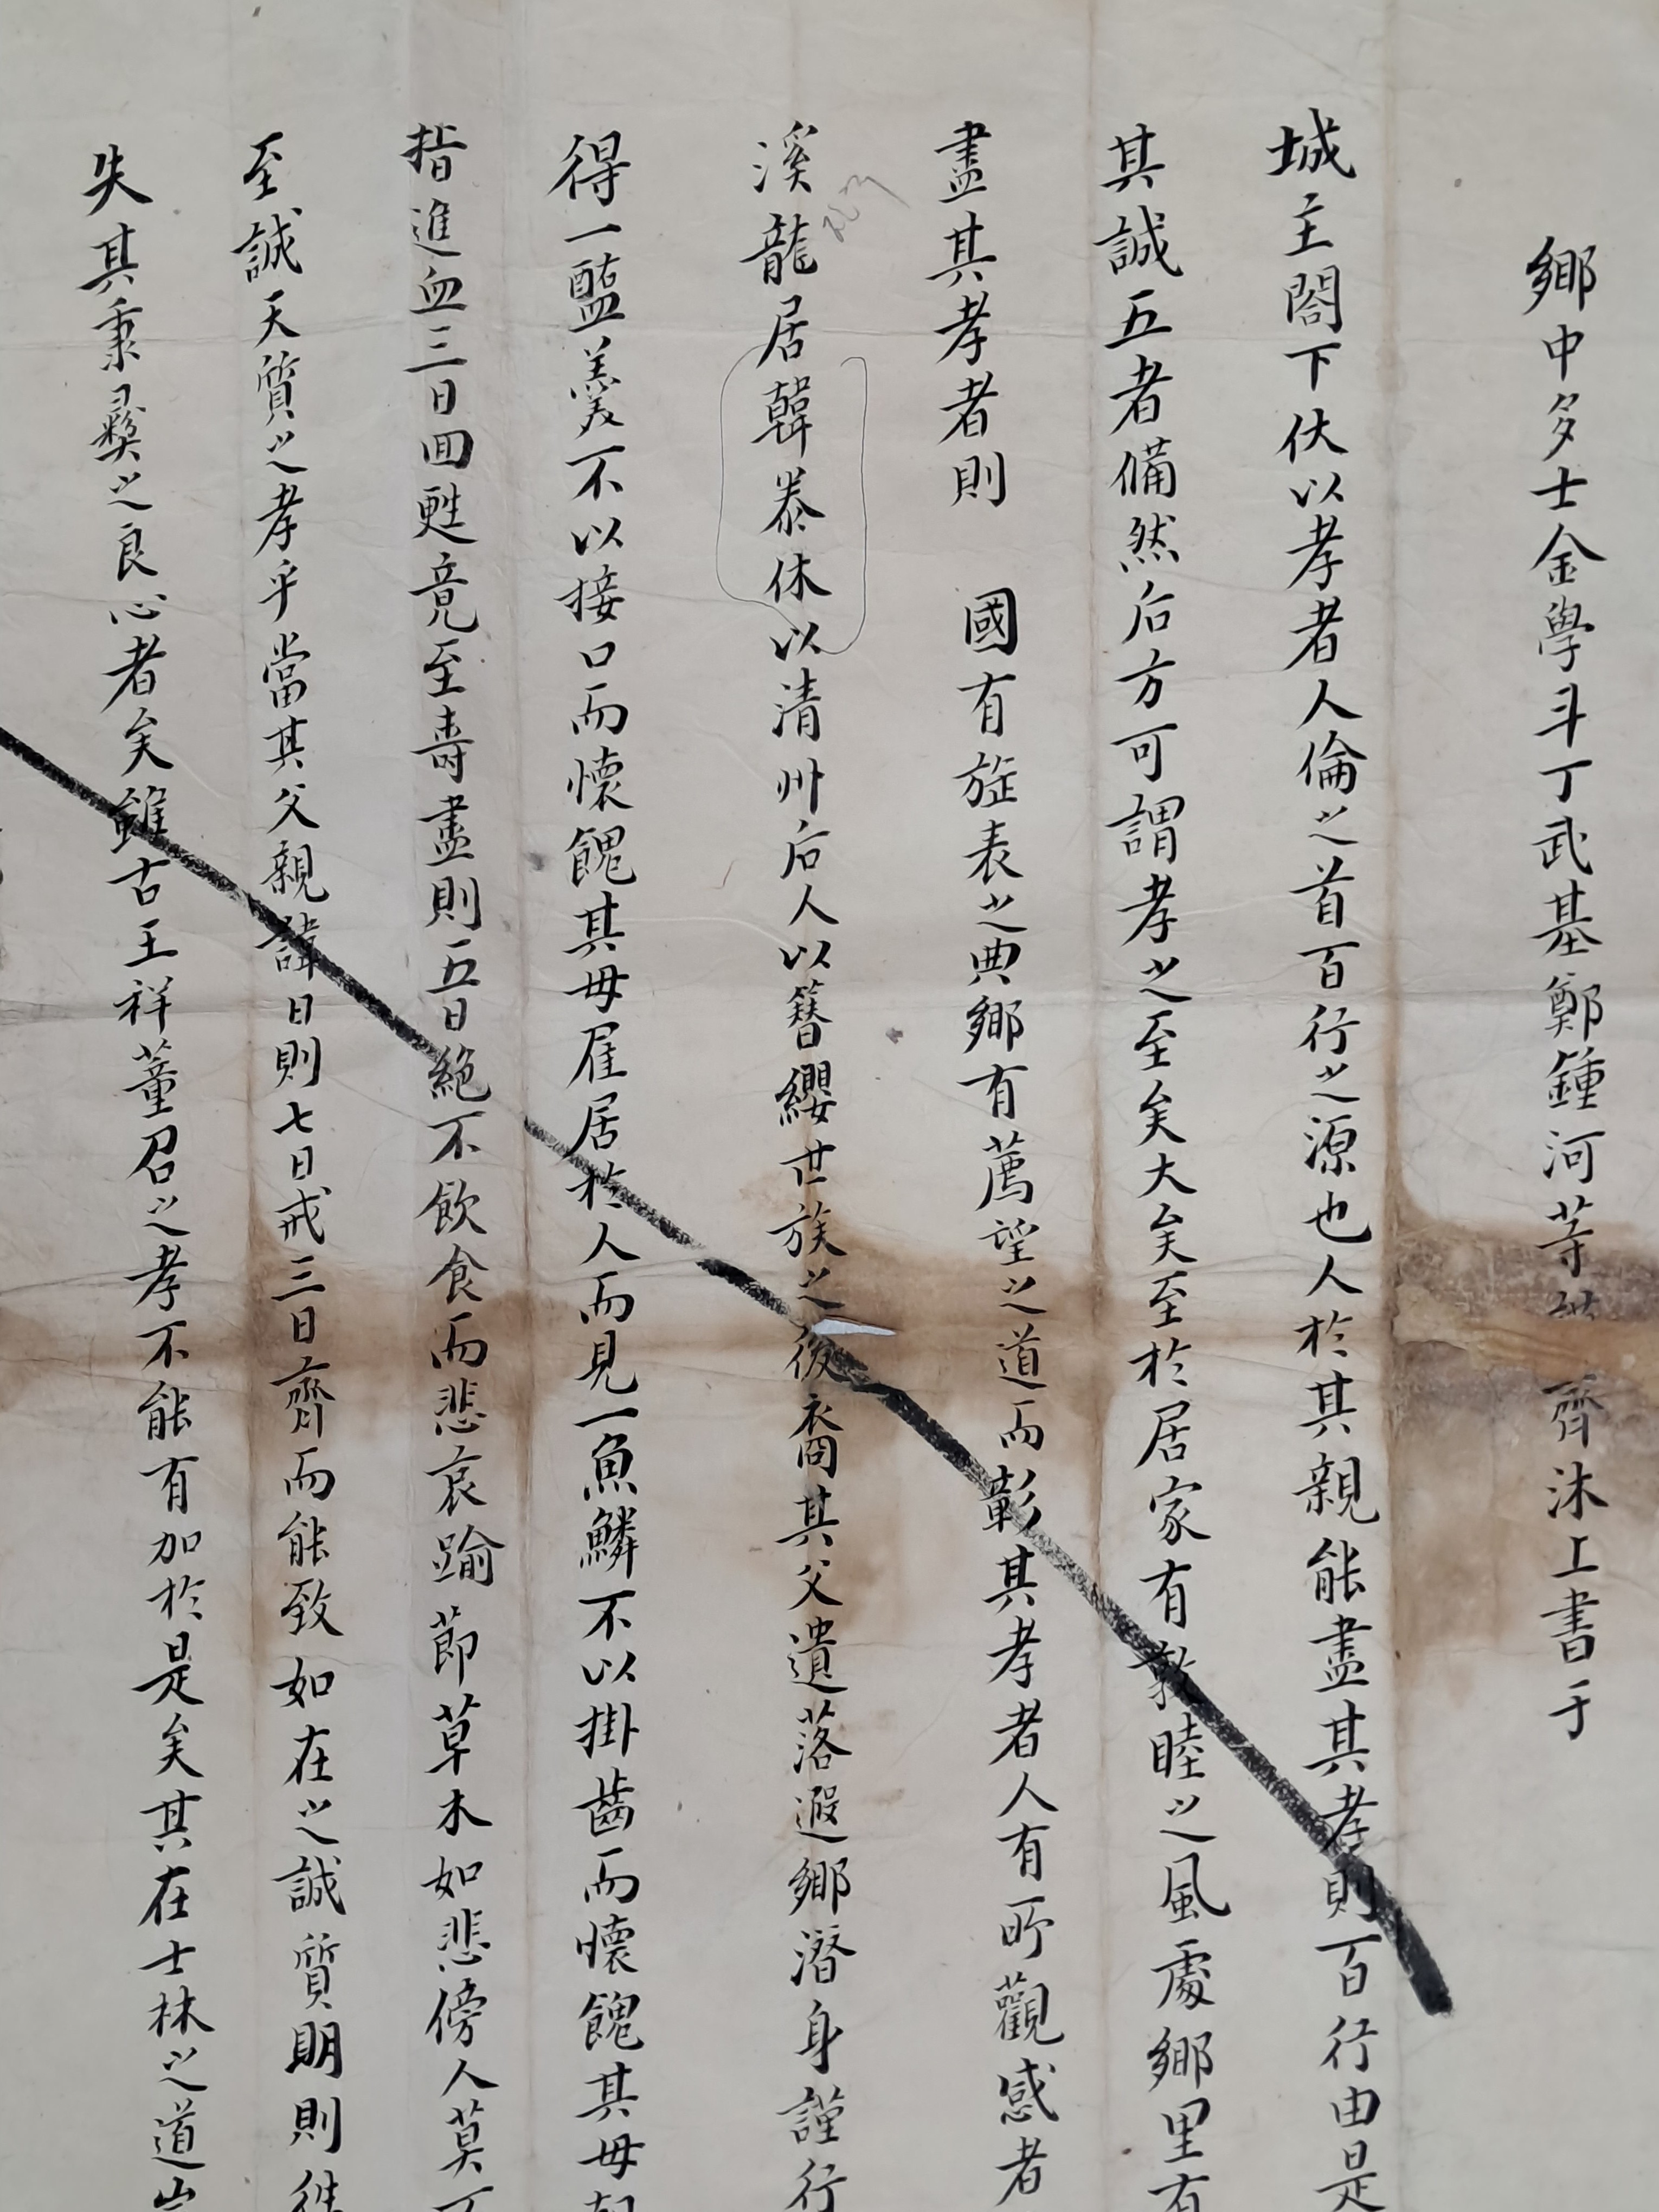 鄉中多士金學斗丁武基鄭鍾河等 齊沐上書于
城主閤下伏以孝者人倫之首百行之源也人於其親能盡其孝則百行由是
其誠五者備然后方可謂孝之至矣大矣至於居家有敦睦之風處鄉里有
盡其孝者則 國有旌表之典鄉有薦望之道而彰其孝者人有所觀感者
溪龍居韓泰休以清州后人以簪纓世族之後裔其父遺落遐鄉潛身謹行
得一盬羹不以接口而懷餽其母雇居於人而見一魚鱗不以掛齒而懷餽其母
指進血三日回甦竟至壽盡則五日絶不飲食而悲哀踰節草木如悲傍人莫不
至誠天質之孝乎當其父親諱日則七日戒三日齊而能致如在之誠質明則
失其秉彛之良心者矣雖古王祥董召之孝不能有加於是矣其在士林之道